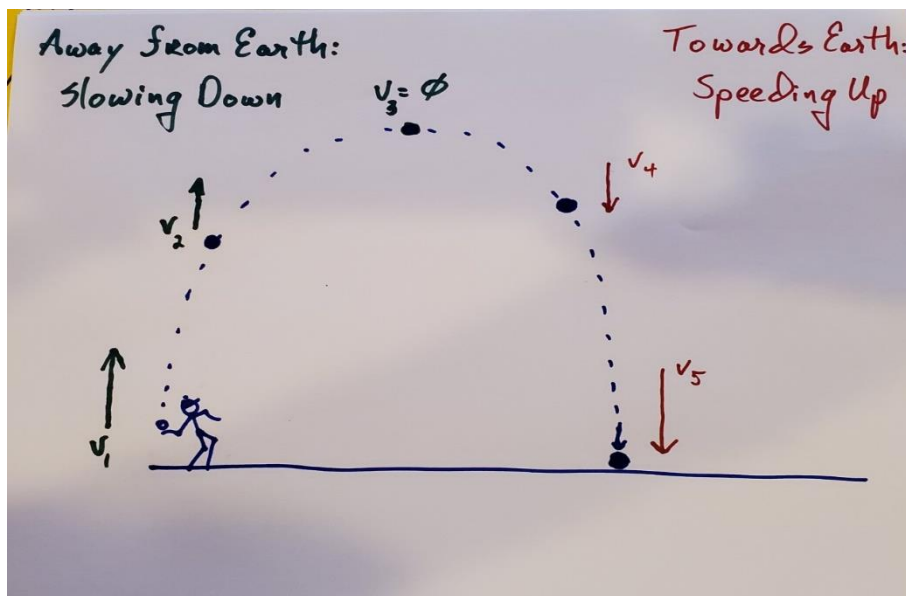 Away from Earth:
Slowing Down
Towards Earth:
Speeding Up
v₃ = ϕ
v₄
v₂
v₅
v₁